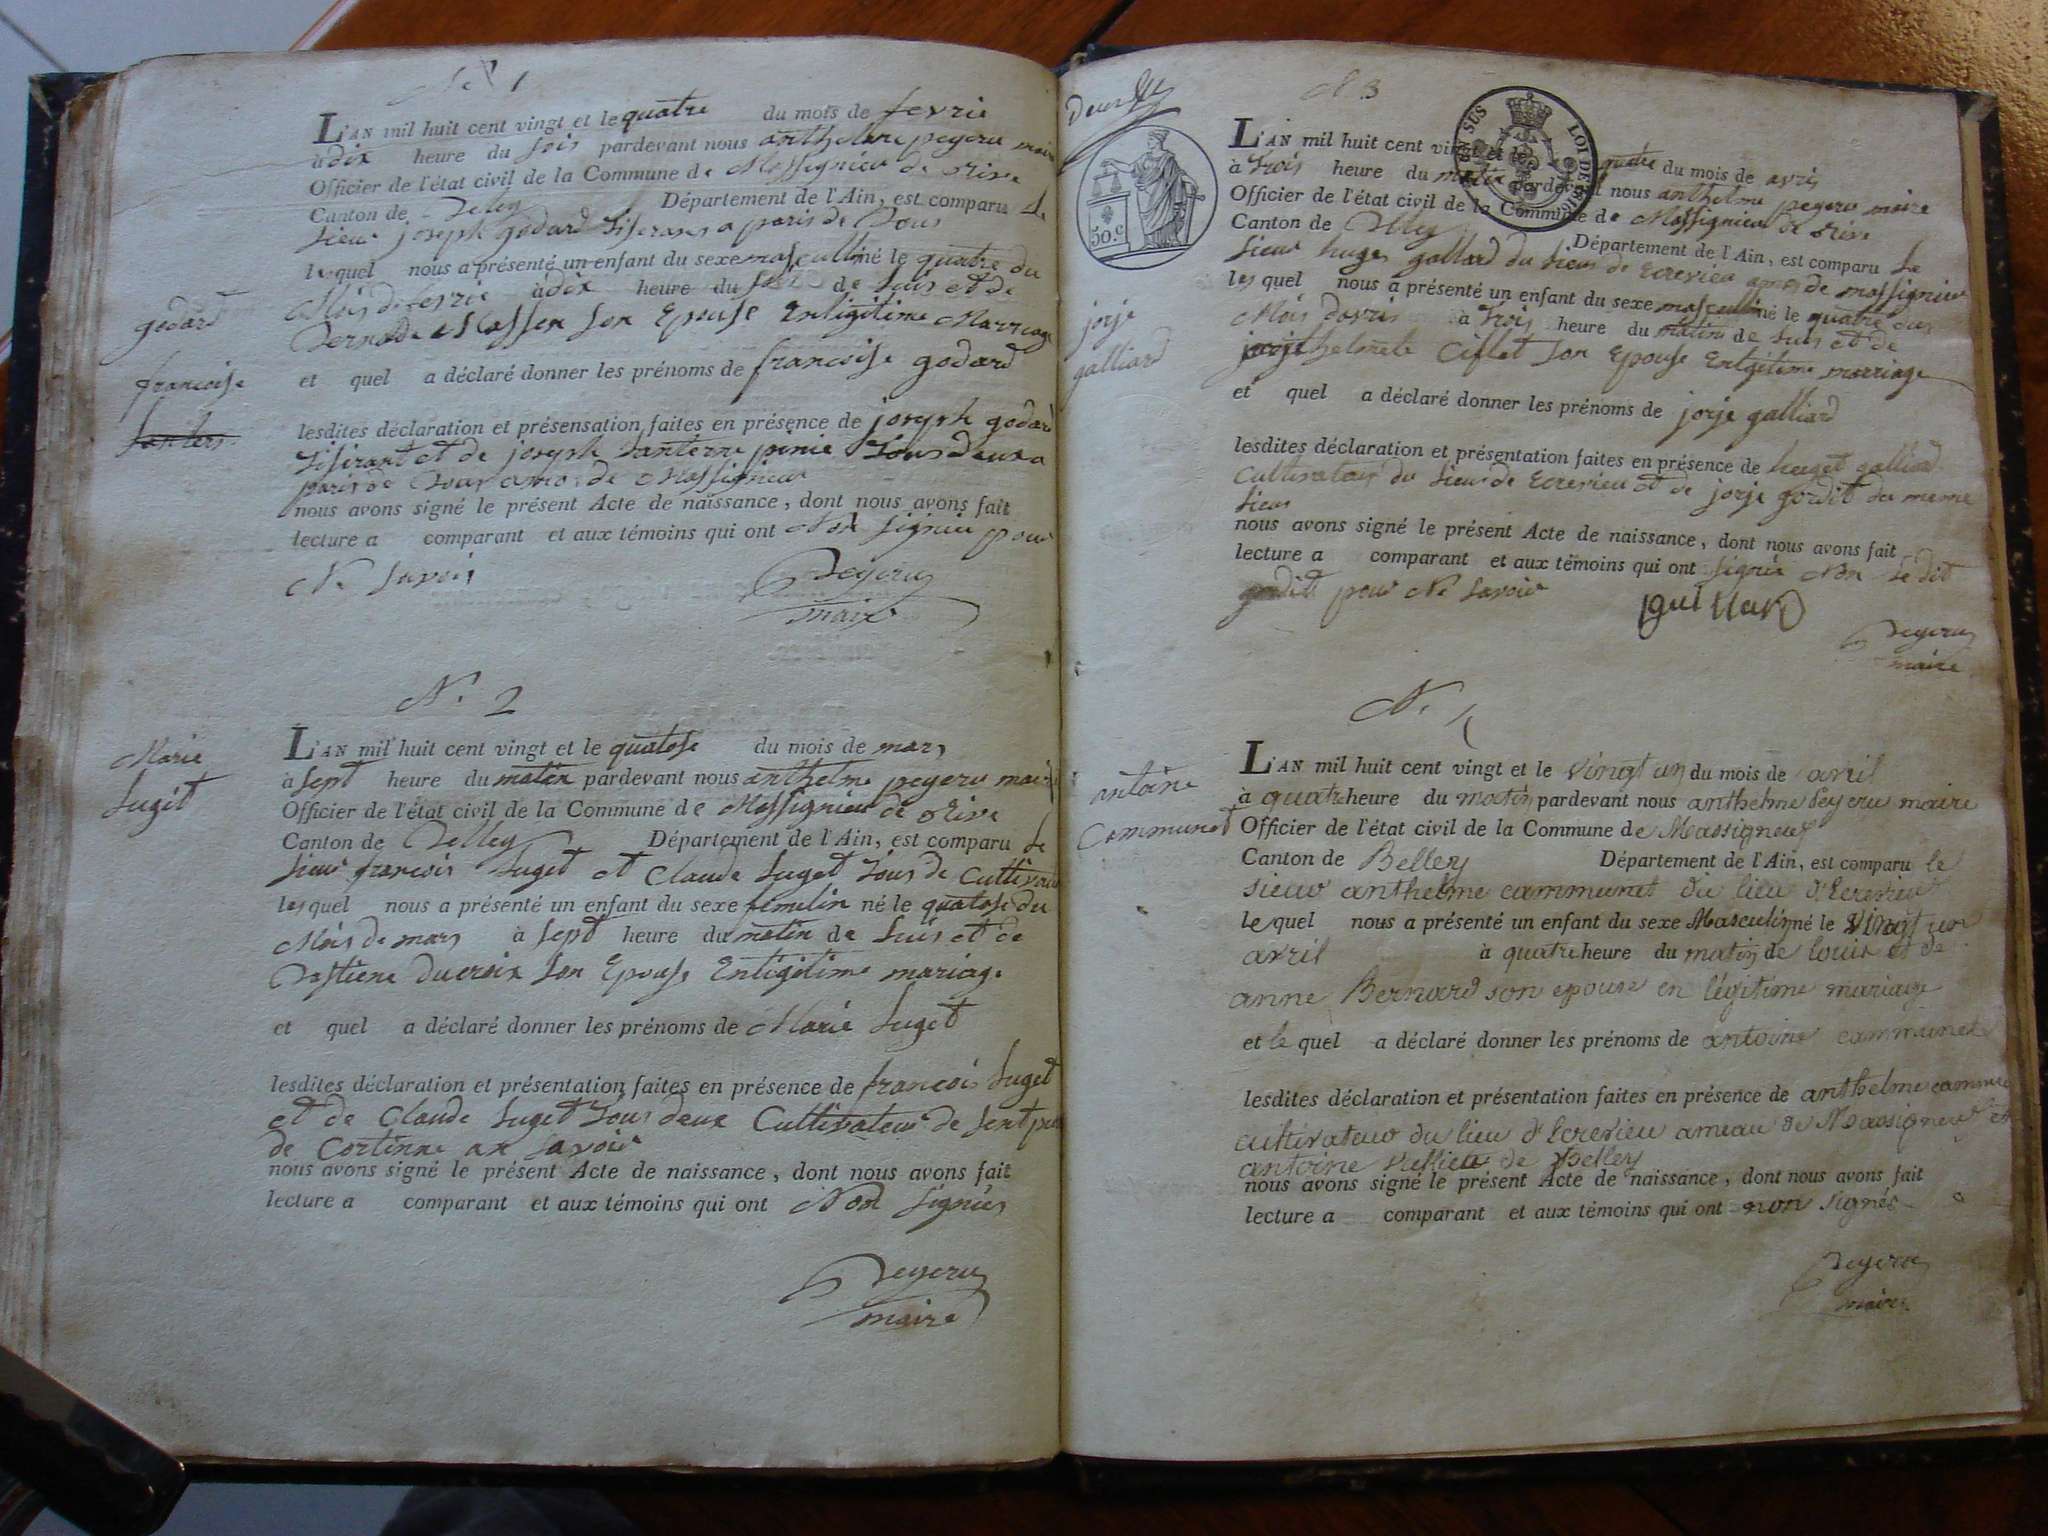 N 1
L'AN mil huit cent vingt et le quatre du mois de fevrie
à dix heure du soir pardevant nous anthelme peyeru maire
Officier de l'état civil de la Commune de Massignieu de rive
Canton de Beley Département de l'Ain, est comparu le
sieur joseph godard
les quel nous a présenté un enfant du sexe masculin né le quatre du
Mois de fevrie à dix heure du soir de luis et de
son Epouse Enligitime Marriage
godard
francoise
et quel a déclaré donner les prénoms de francoise godard
lesdites déclaration et présensation faites en présence de joseph godard
et de joseph tous deux
de Massignieu
nous avons signé le présent Acte de naissance, dont nous avons fait
lecture a comparant et aux témoins qui ont Non signier pour
Ne savoir
Peyeru
maire
N. 2
Marie
Suget
L'AN mil huit cent vingt et le quatose du mois de mars
à sept heure du matin pardevant nous anthelme peyeru maire
Officier de l'état civil de la Commune de Massignieu de rive
Canton de Belley Département de l'Ain, est comparu le
sieur francois Suget et Claude Suget tous de Cultivateur
les quel nous a présenté un enfant du sexe femelin né le quatose du
Mois de mars à sept heure du matin de luis et de
Bastiene ducroix son Epouse Enligitime mariage
et quel a déclaré donner les prénoms de Marie Suget
lesdites déclaration et présentation faites en présence de francois Suget
et de Claude Suget tous deux Cultivateur de
de savoir
nous avons signé le présent Acte de naissance, dont nous avons fait
lecture a comparant et aux témoins qui ont Non signiés
Peyeru
maire
50.c
EN SUS LOI DE 1816
N 3
jorje
galliard
L'AN mil huit cent vingt et le quatre du mois de avris
à trois heure du matin pardevant nous anthelme peyeru maire
Officier de l'état civil de la Commune de Massignieu de rive
Canton de Belley Département de l'Ain, est comparu le
sieur huges gallard du lieus de Ecrevieu de massignieu
les quel nous a présenté un enfant du sexe masculin né le quatre du
Mois davris à trois heure du matin de luis et de
son Epouse Enligitime marriage
et quel a déclaré donner les prénoms de jorje galliard
lesdites déclaration et présentation faites en présence de huget galliard
Cultivateur du lieus de Ecrevieu et de jorje gordit du meme
lieus
nous avons signé le présent Acte de naissance, dont nous avons fait
lecture a comparant et aux témoins qui ont signié Non le dit
gordit pour Ne savoir
Peyeru
maire
antoine
Communet
L'AN mil huit cent vingt et le vingt un du mois de avril
à quatre heure du matin pardevant nous anthelme Peyeru maire
Officier de l'état civil de la Commune de Massigneux
Canton de Belley Département de l'Ain, est comparu le
sieur anthelme communet du lieu d'Ecrevieu
le quel nous a présenté un enfant du sexe Masculin né le vingt un
avril à quatre heure du matin de louis et de
anne Bernard son epouse en légitime mariage
et le quel a déclaré donner les prénoms de antoine communet
lesdites déclaration et présentation faites en présence de anthelme
cultivateur du lieu d'Ecrevieu ameau de Massigneux et
antoine de Belley
nous avons signé le présent Acte de naissance, dont nous avons fait
lecture a comparant et aux témoins qui ont non signés
Peyeru
maire